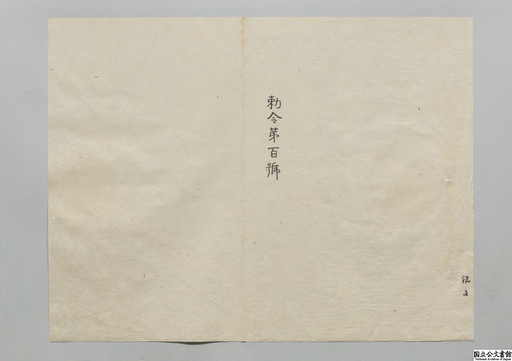 勅令第百號
国立公文書館
National Archives of Japan